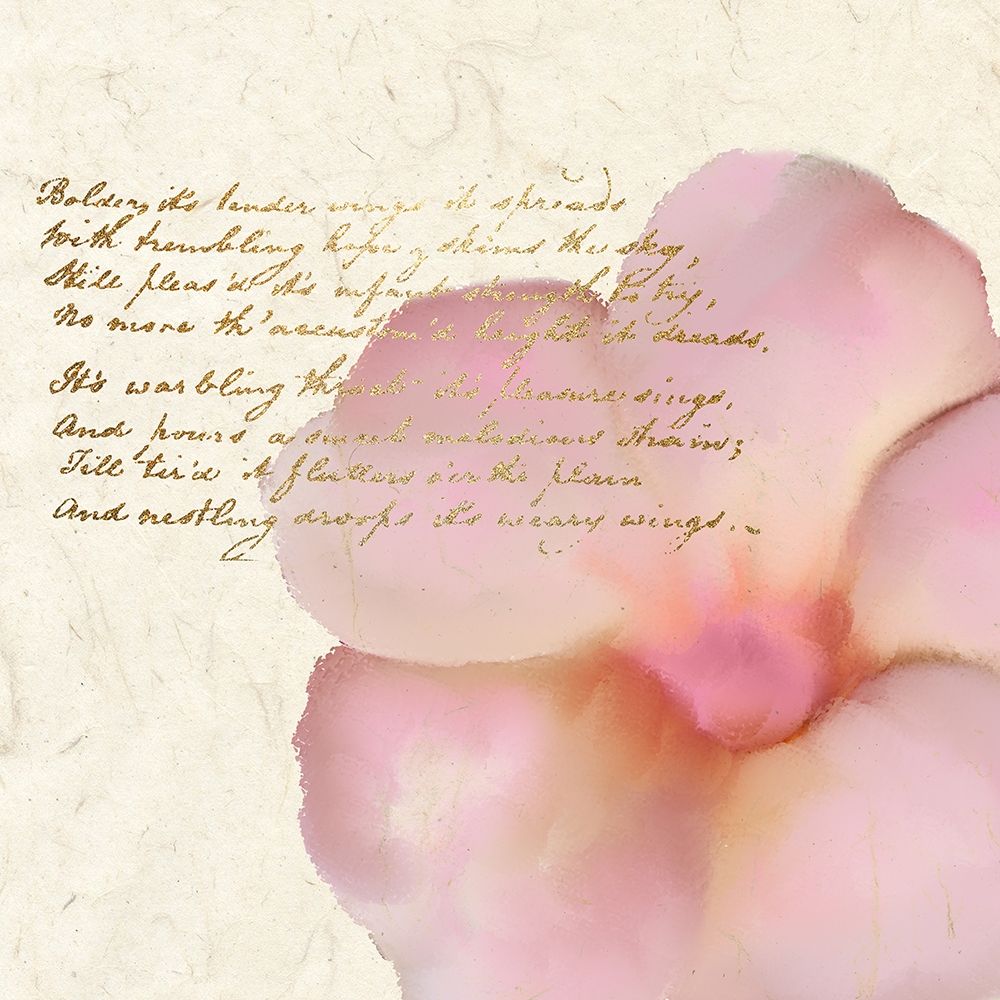 Bolder, it's tender wings it spreads
With trembling hope, skims the sky,
Still pleas'd it's infant strength to try,
No more th' accustom'd height it dreads.
It's warbling throat it's pleasure sings,
And pours a sweet melodious strain;
Till tir'd it flutters o'er the plain
And nestling droops it's weary wings.